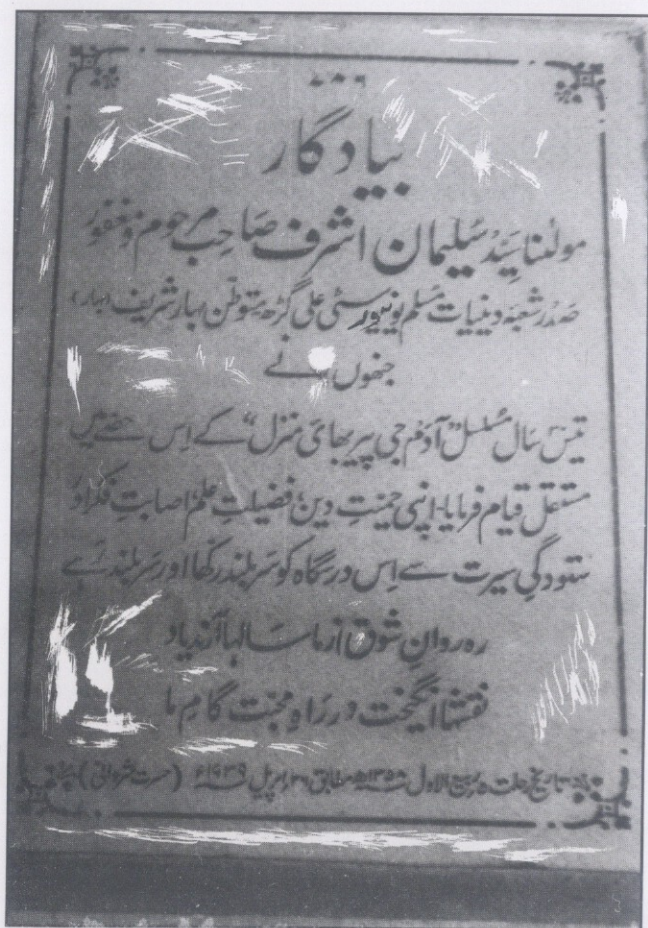 ۷۸۶
بیادگار
مولٰنا سید سلیمان اشرف صاحب مرحوم و مغفور
صدر شعبہ دینیات مسلم یونیورسٹی علی گڑھ متوطن بہار شریف (بہار)
جنھوں نے
تیس سال مسلسل "آدم جی پیر بھائی منزل" کے اس حصے میں
مستقل قیام فرمایا۔ اپنی حمیت دین، فضیلت علم، اصابت فکر اور
ستودگی سیرت سے اس درسگاہ کو سربلند رکھا اور سربلند رہے
رہ روان شوق از ما سالہا آرند یاد
نقشہا انگیخت در راہ محبت گام ما
تاریخ رحلت ۵ ربیع الاول ۱۳۵۸ھ مطابق ۲۶ اپریل ۱۹۳۹ء (حسرت شروانی)